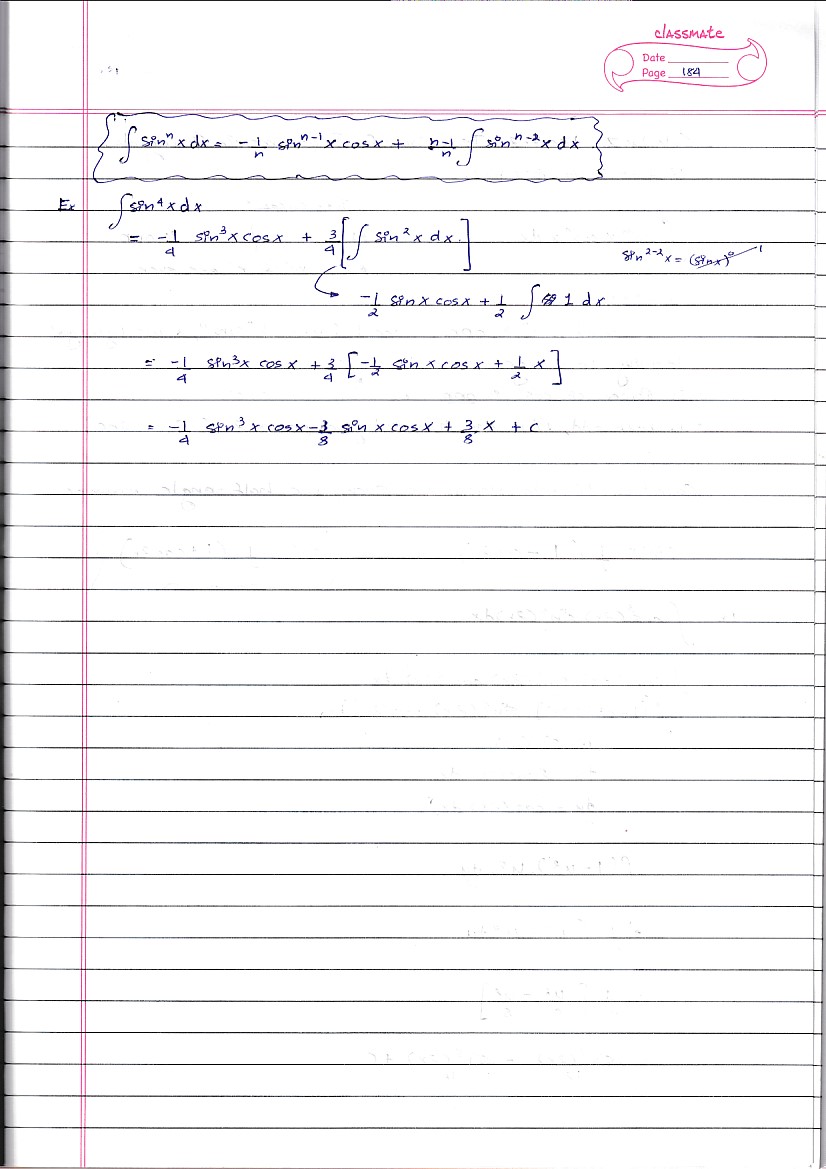 classmate
Date
Page 184
∫ sinⁿ x dx = -1/n sinⁿ⁻¹ x cos x + n-1/n ∫ sinⁿ⁻² x dx
Ex ∫ sin⁴ x dx
= -1/4 sin³ x cos x + 3/4 [ ∫ sin² x dx ]
sin²⁻² x = (sin x)⁰ 1
-1/2 sin x cos x + 1/2 ∫ 1 dx
= -1/4 sin³ x cos x + 3/4 [ -1/2 sin x cos x + 1/2 x ]
= -1/4 sin³ x cos x - 3/8 sin x cos x + 3/8 x + c